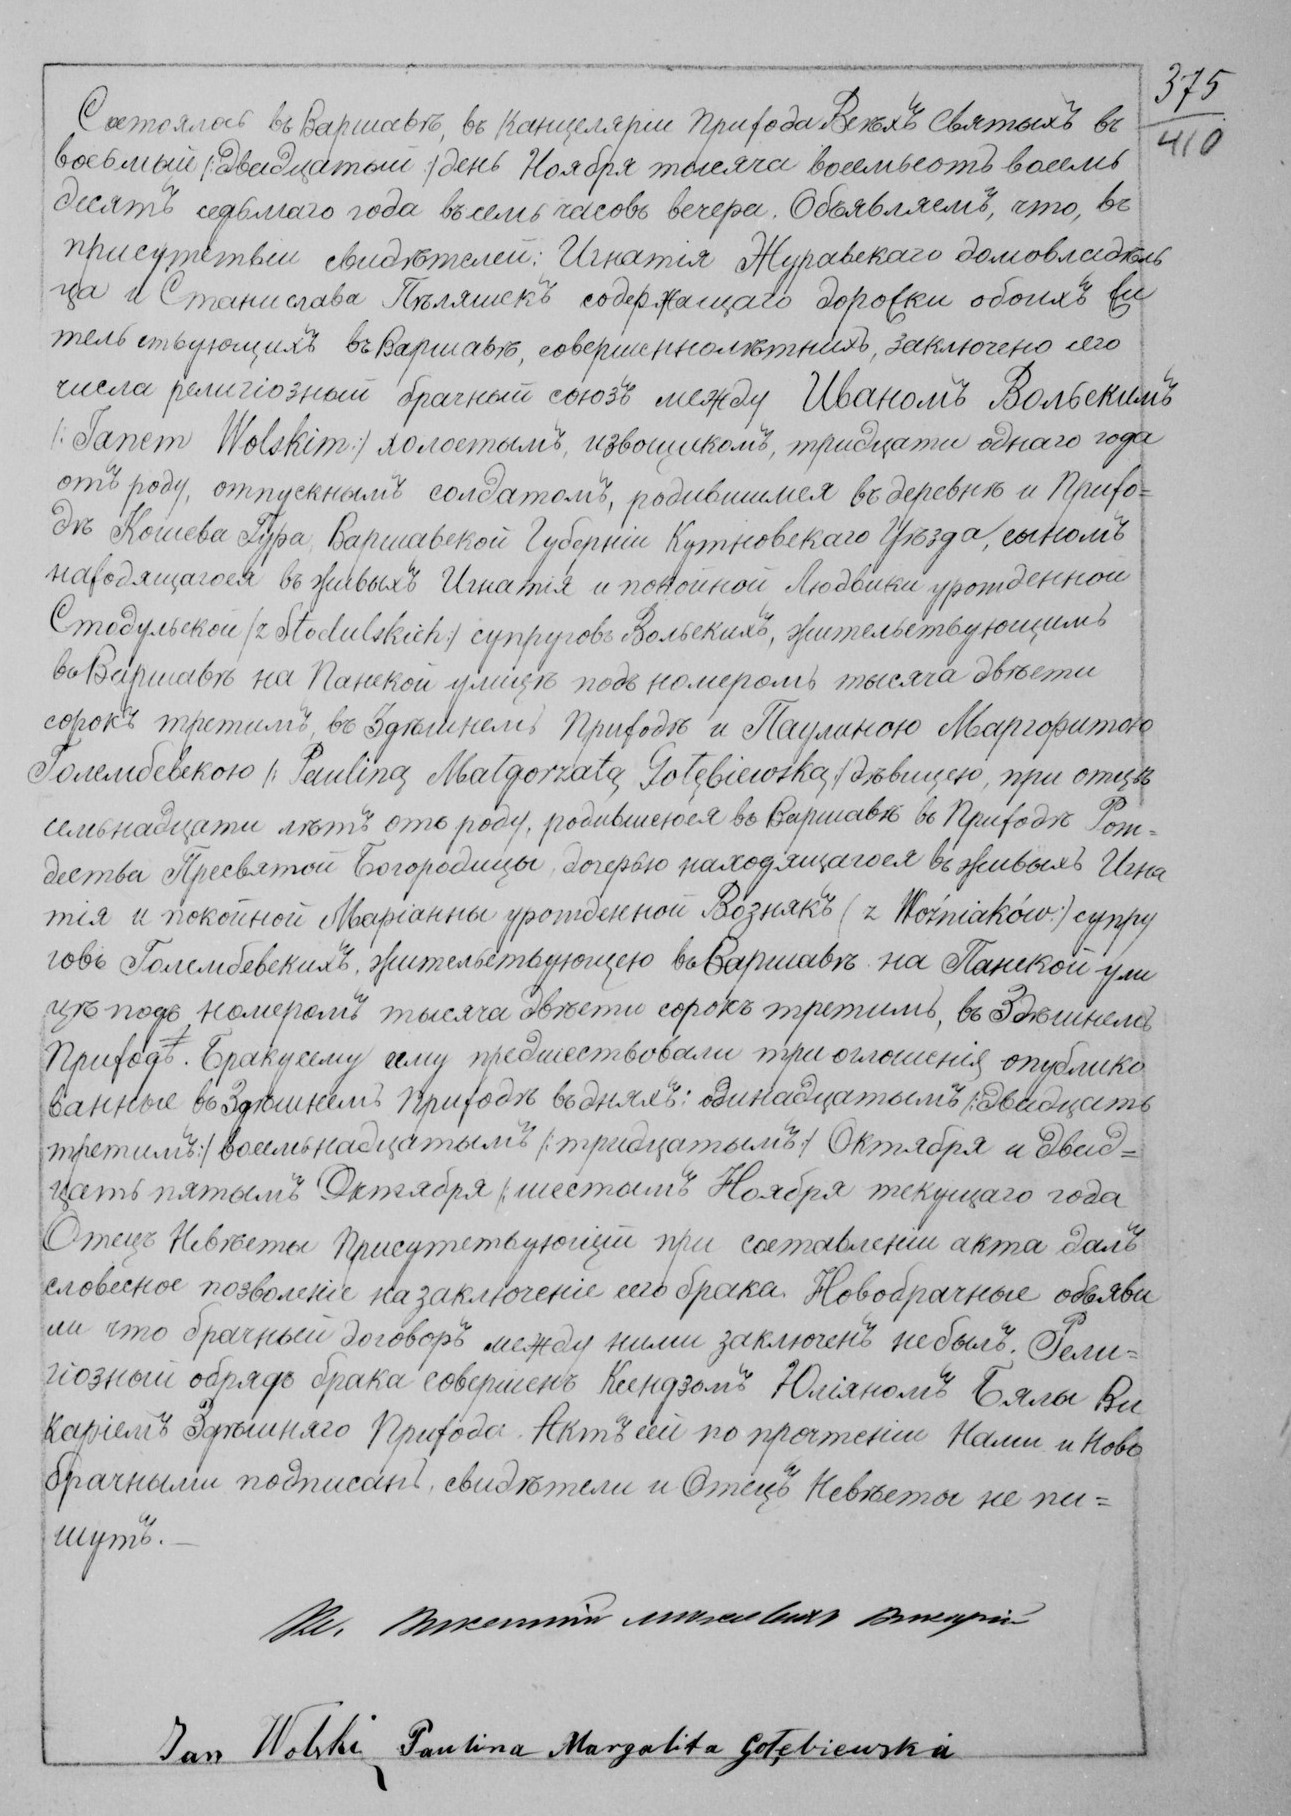 375
410
Состоялось въ Варшавѣ, въ Канцеляріи Прихода Всѣхъ Святыхъ въ
восьмый /:двадцатый:/ день Ноября тысяча восемьсотъ восемь
десятъ седьмаго года въ семь часовъ вечера. Объявляемъ, что, въ
присутствіи свидѣтелей: Игнатія Журавскаго домовладѣль
ца и Станислава Пѣляшекъ содержащаго дорожки обоихъ жи
тельствующихъ въ Варшавѣ, совершеннолѣтнихъ, заключено сего
числа религіозный брачный союзъ между Иваномъ Вольскимъ
/: Janem Wolskim:/ холостымъ, извощикомъ, тридцати однаго года
отъ роду, отпускнымъ солдатомъ, родившимся въ деревнѣ и Прихо=
дѣ Кошева Гура, Варшавской Губерніи Кутновскаго Уѣзда, сыномъ
находящагося въ живыхъ Игнатія и покойной Людвики урожденной
Стодульской /z Stodulskich:/ супруговъ Вольскихъ, жительствующимъ
въ Варшавѣ на Панской улицѣ подъ номеромъ тысяча двѣсти
сорокъ третимъ, въ Здѣшнемъ Приходѣ и Паулиною Маргоритою
Голембевскою /: Pauliną Małgorzatą Gołębiewską:/ дѣвицею, при отцѣ
семьнадцати лѣтъ отъ роду, родившеюся въ Варшавѣ въ Приходѣ Рож=
дества Пресвятой Богородицы, дочерью находящагося въ живыхъ Игна
тія и покойной Маріанны урожденной Вознякъ ( z Woźniaków:) супру
говъ Голембевскихъ, жительствующею въ Варшавѣ на Панской ули
цѣ подъ номеромъ тысяча двѣсти сорокъ третимъ, въ Здѣшнемъ
Приходѣ. Браку сему предшествовали три оглошенія опублико
ванные въ Здѣшнемъ Приходѣ въ дняхъ: одинадцатымъ /:двадцать
третимъ:/ восемьнадцатымъ /:тридцатымъ:/ Октября и двад=
цать пятымъ Октября /:шестымъ Ноября текущаго года
Отецъ Невѣсты присутствующій при составленіи акта далъ
словесное позволеніе на заключеніе сего брака. Новобрачные объяви
ли что брачный договоръ между ними заключенъ небылъ. Рели=
гіозный обрядъ брака совершенъ Ксендзомъ Юліяномъ Бялы Ви
каріемъ Здѣшняго Прихода. Актъ сей по прочтеніи Нами и Ново
брачными подписанъ, свидѣтели и Отецъ Невѣсты не пи=
шутъ.—
Jan Wolski Paulina Margalita Gołębiewska